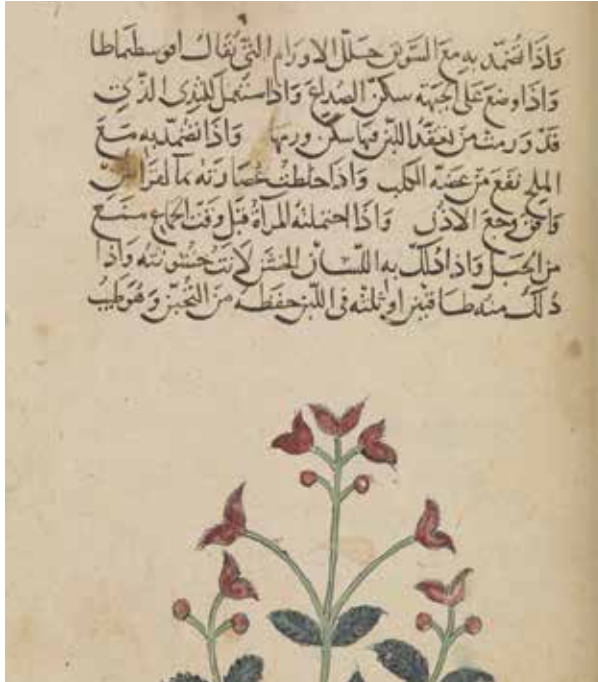 واذا تضمد به مع السويق حلل الاورام التي يقال افوسطيماطا
واذا وضع على الجبهة سكن الصداع واذا استعمل للثدي الذي
قد ورمت من تعقد اللبن فيها سكن ورمها واذا تضمد به مع
الملح نفع من عضه الكلب واذا خلطت عصارته بما
وافق وجع الاذن واذا احتملته المرأة قبل وقت الجماع منع
من الحبل واذا دلك به اللسان الخشن لانت خشونته واذا
دلك منه طاقتين او ثلثه في اللبن حفظه من التجبن وهو طيب